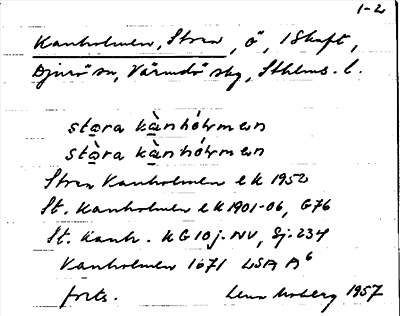 1-2
Kanholmen, Stora, ö, i Skaft,
Djurö sn, Värmdö skg, Sthlms l.
stora kànhólmen
stòra kànhólmen
Stora Kanholmen ek 1952
St. Kanholmen ek 1901-06, G76
St. Kanh. KG 10 j. NV, Sj. 234
Kanholmen 1671 LSA A6
forts. Lena Moberg 1957